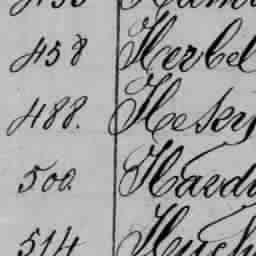 458 Herbel
488. Hesky
500 Havd
514 Huch